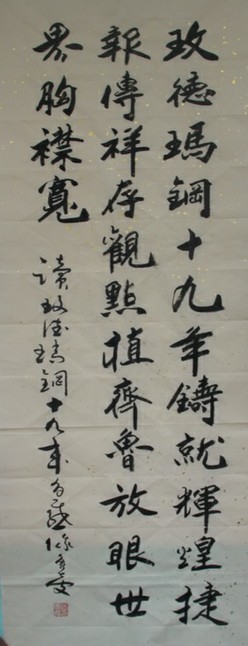 玫德瑪鋼十九年鑄就輝煌捷
報傳祥存觀點植齊魯放眼世
界胸襟寬
讀玫德瑪鋼十九年有感